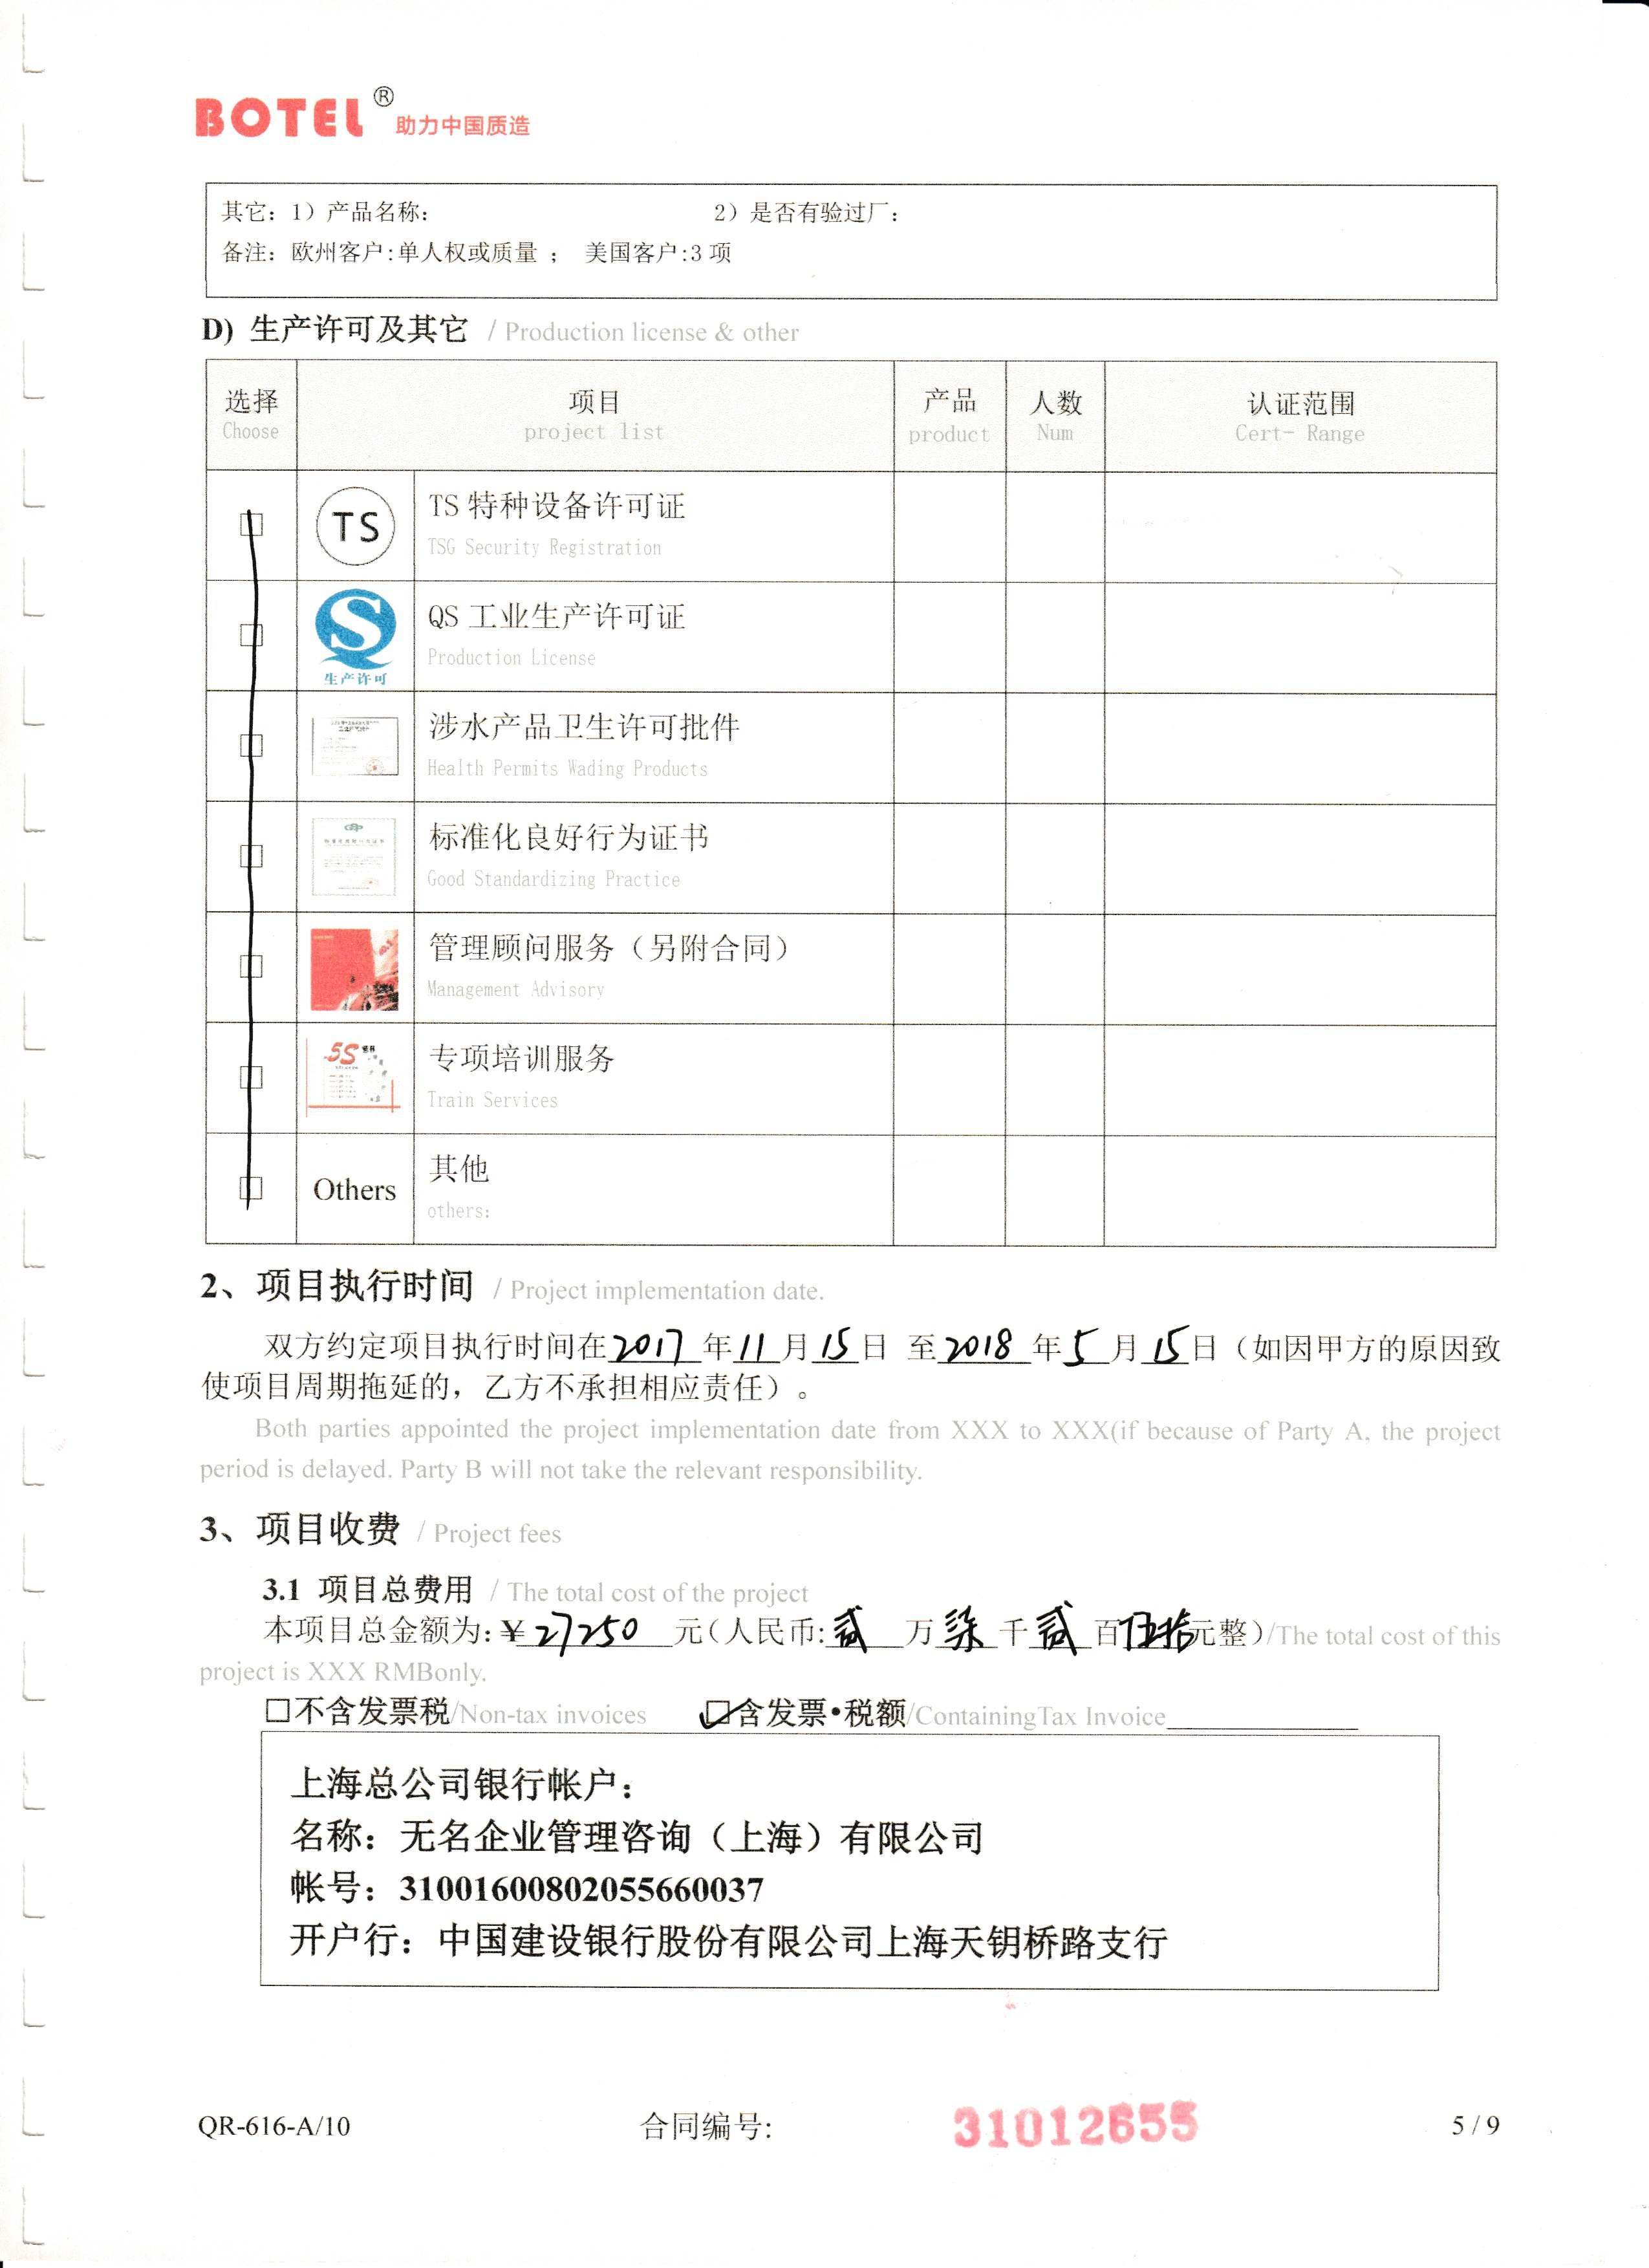 BOTEL® 助力中国质造
其它：1）产品名称： 2）是否有验过厂：
备注：欧州客户:单人权或质量 ； 美国客户:3 项
D) 生产许可及其它 / Production license & other
选择 项目 产品 人数 认证范围
Choose project list product Num Cert- Range
TS TS 特种设备许可证
TSG Security Registration
QS 工业生产许可证
生产许可 Production License
涉水产品卫生许可批件
Health Permits Wading Products
标准化良好行为证书
Good Standardizing Practice
管理顾问服务（另附合同）
Management Advisory
5S 专项培训服务
Train Services
Others 其他
others:
2、项目执行时间 / Project implementation date.
双方约定项目执行时间在 2017 年 11 月 15 日 至 2018 年 5 月 15 日（如因甲方的原因致
使项目周期拖延的，乙方不承担相应责任）。
Both parties appointed the project implementation date from XXX to XXX(if because of Party A, the project
period is delayed. Party B will not take the relevant responsibility.
3、项目收费 / Project fees
3.1 项目总费用 / The total cost of the project
本项目总金额为:¥ 27250 元(人民币:贰 万 柒 千 贰 百 伍拾元整)/The total cost of this
project is XXX RMBonly.
□不含发票税/Non-tax invoices ☑含发票•税额/ContainingTax Invoice
上海总公司银行帐户：
名称：无名企业管理咨询（上海）有限公司
帐号：31001600802055660037
开户行：中国建设银行股份有限公司上海天钥桥路支行
QR-616-A/10 合同编号: 31012655 5 / 9